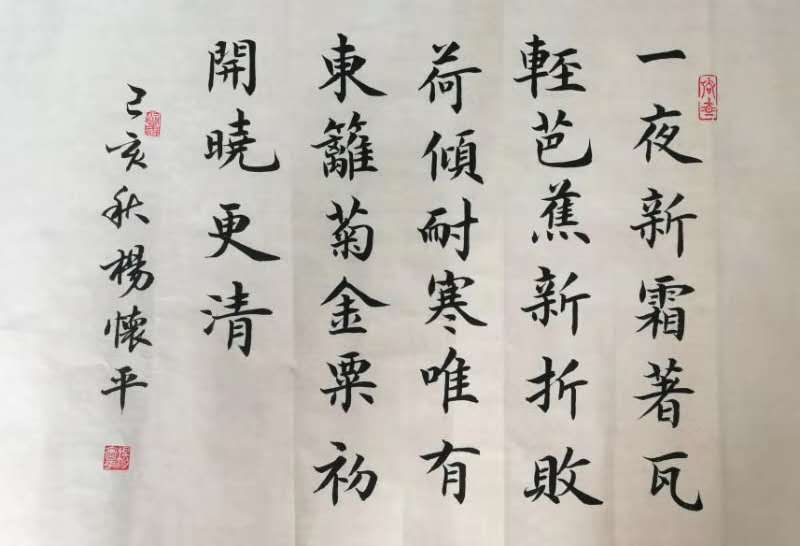 一夜新霜著瓦
輕芭蕉新折敗
荷傾耐寒唯有
東籬菊金粟初
開曉更清
己亥秋楊懷平